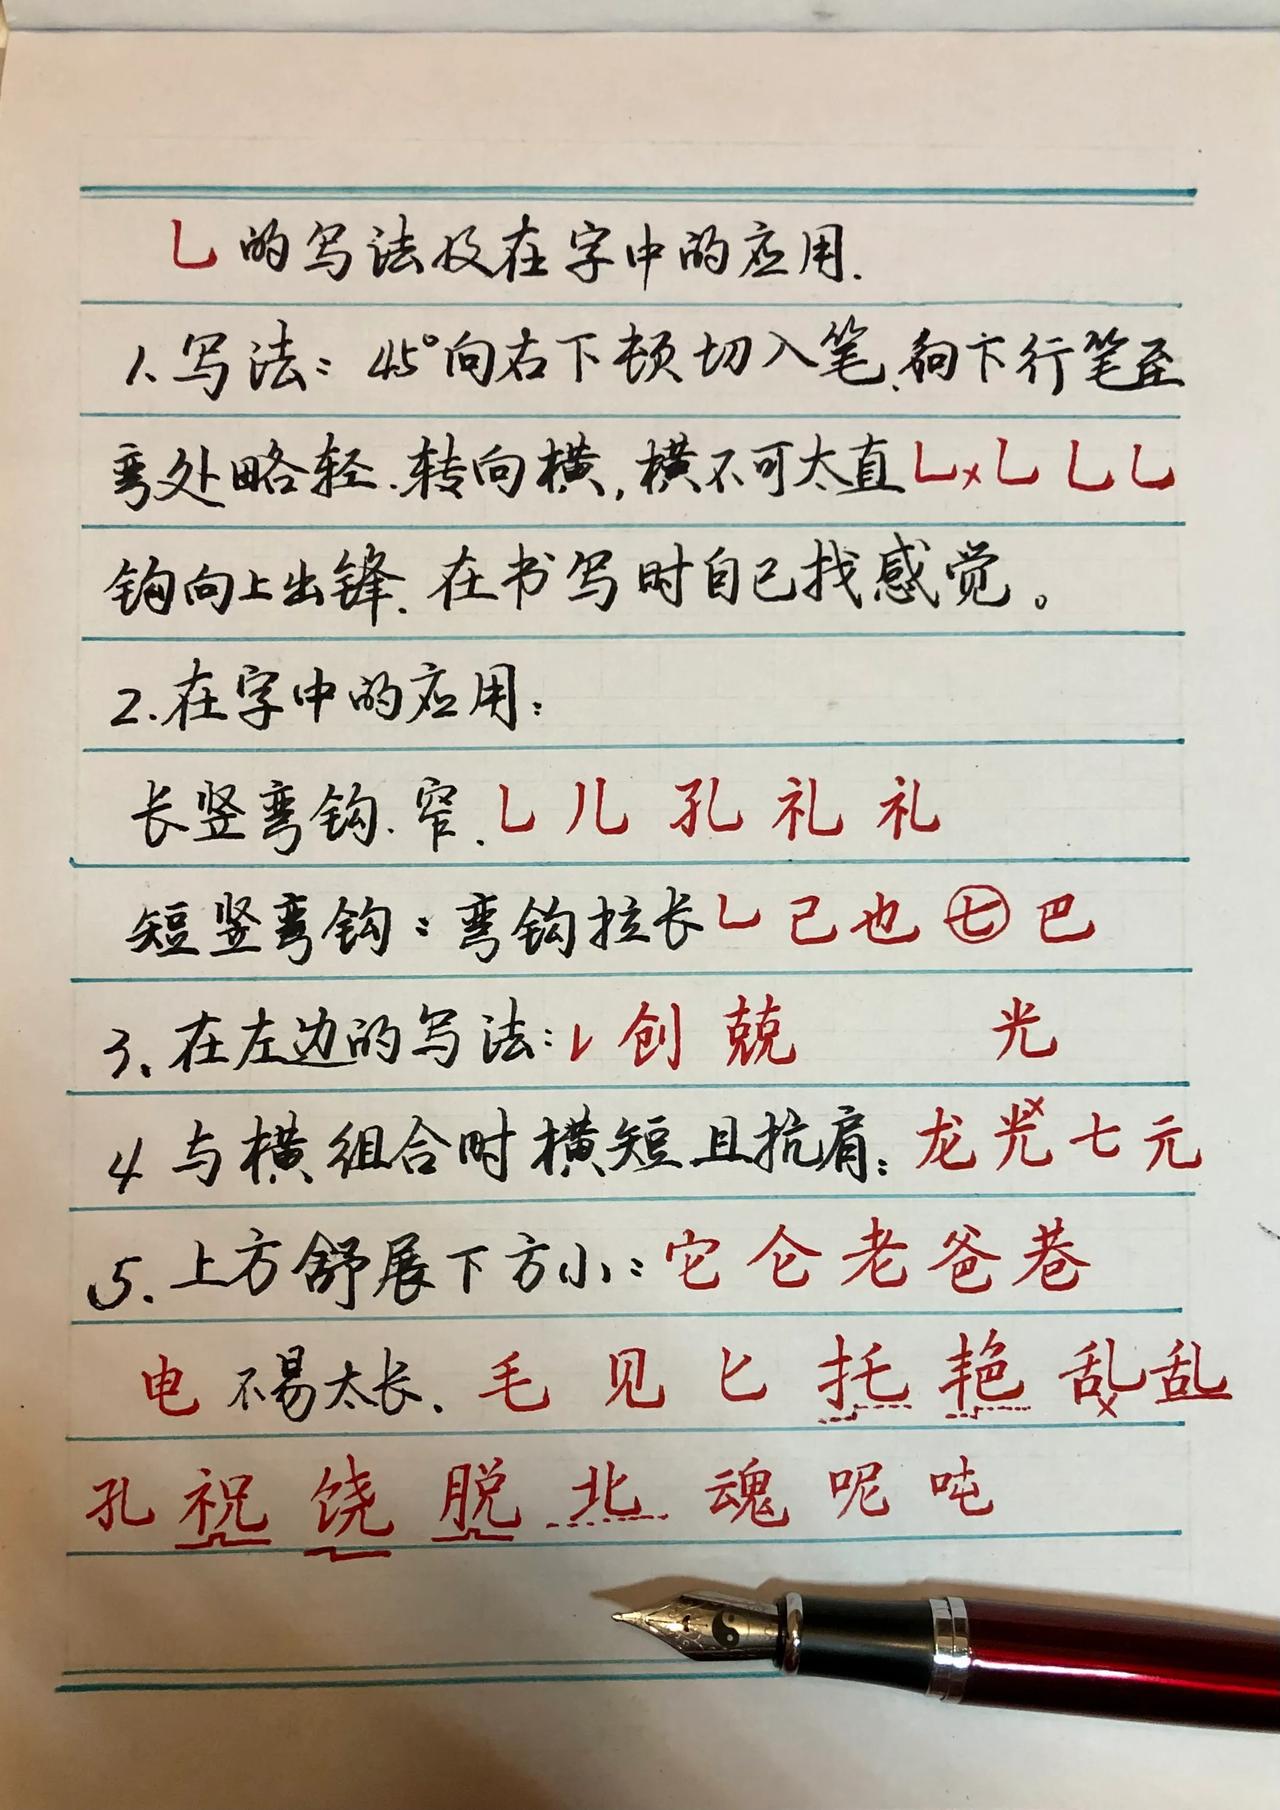 乚的写法及在字中的应用.
1.写法：45°向右下顿切入笔.向下行笔至
弯处略轻.转向横,横不可太直乚×乚乚乚
钩向上出锋.在书写时自己找感觉。
2.在字中的应用：
长竖弯钩.窄.乚儿孔礼礼
短竖弯钩：弯钩拉长乚己也七巴
3.在左边的写法：创兢 光
4与横组合时横短且抗肩：龙光×七元
5.上方舒展下方小：它仑老爸巷
电不易太长.毛见匕托艳乱×乱
孔祝饶脱北魂呢吨